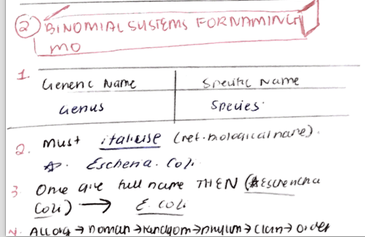 2 BINOMIAL SYSTEMS FOR NAMING
MO
1. Generic Name Specific Name
Genus Species
2. Must italicise (ref. biological name).
Escheria. Coli
3 One give full name THEN (Escherichia
Coli) → E coli
4. All org → Domain → Kingdom → phylum → class → order